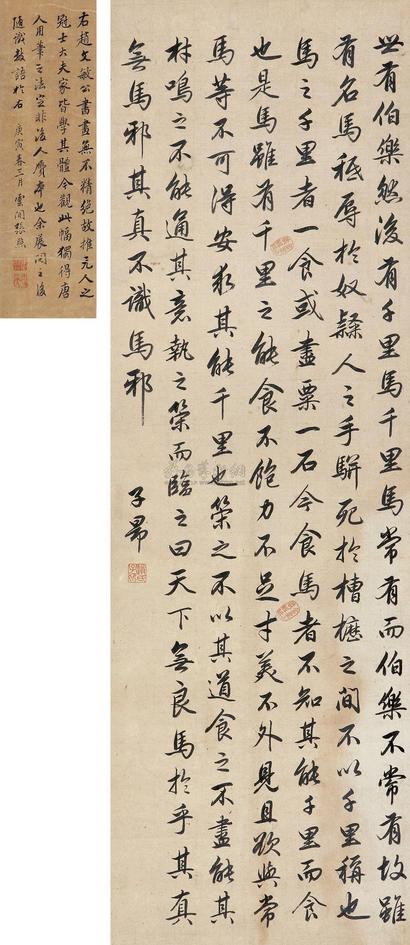 世有伯樂然後有千里馬千里馬常有而伯樂不常有故雖
有名馬秖辱於奴隸人之手駢死於槽櫪之間不以千里稱也
馬之千里者一食或盡粟一石今食馬者不知其能千里而食
也是馬雖有千里之能食不飽力不足才美不外見且欲與常
馬等不可得安求其能千里也策之不以其道食之不盡能其
材鳴之不能通其意執之策而臨之曰天下無良馬於乎其真
無馬邪其真不識馬邪
子昂
右趙文敏公書畫無不精絕故推元人之
冠士大夫家皆學其體今觀此幅獨得唐
人用筆之法定非後人贗本也余展閱之後
隨識數語於右
庚寅春三月雲間張照